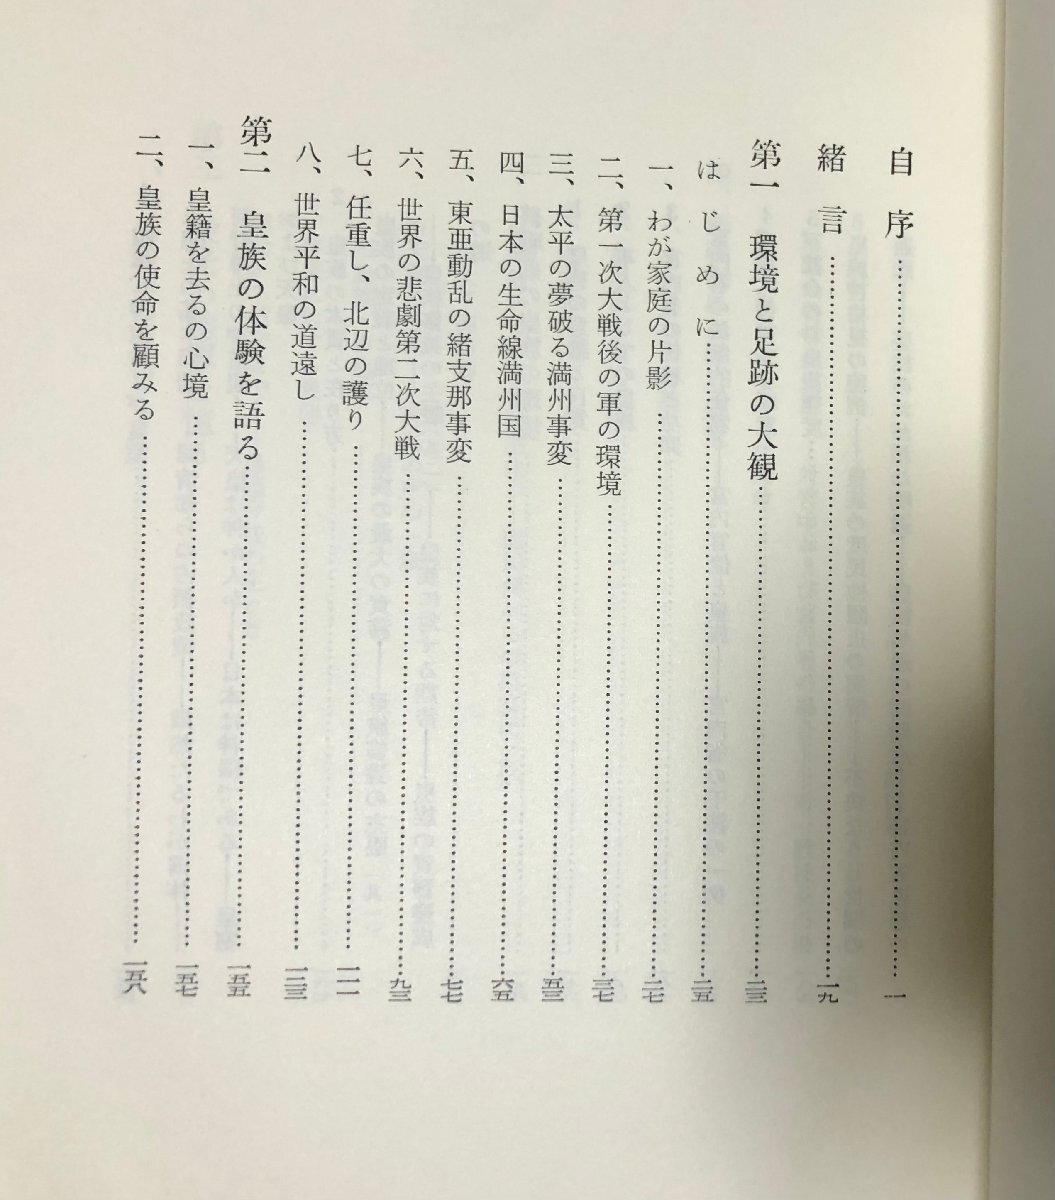 自序……一
緒言……一九
第一　環境と足跡の大観……二三
はじめに……二五
一、わが家庭の片影……二七
二、第一次大戦後の軍の環境……三七
三、太平の夢破る満州事変……五三
四、日本の生命線満州国……六五
五、東亜動乱の緒支那事変……七七
六、世界の悲劇第二次大戦……九三
七、任重し、北辺の護り……一一一
八、世界平和の道遠し……一三三
第二　皇族の体験を語る……一五五
一、皇籍を去るの心境……一五七
二、皇族の使命を顧みる……一五八